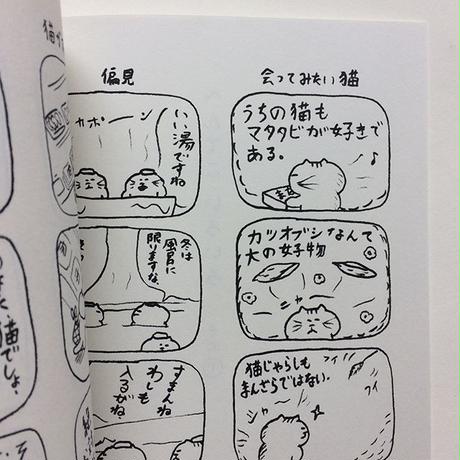 会ってみたい猫
うちの猫も
マタタビが好きで
ある。
♪
カツオブシなんて
大の好物
シャー
猫じゃらしも
まんざらではない。
フイッ
フイ
シャー
偏見
いい湯ですね
カポーン
冬は
風呂に
限りますな。
すまんね
わしも
入るがね。
猫でしょ。